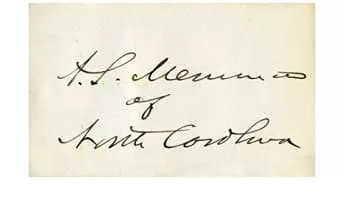 A. S. Merrimon
of
North Carolina